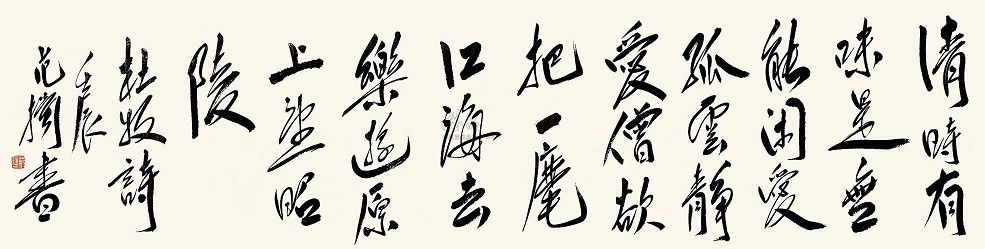 清時有
味是無
能閑愛
孤雲靜
愛僧欲
把一麾
江海去
樂遊原
上望昭
陵
杜牧詩
壬辰
范書